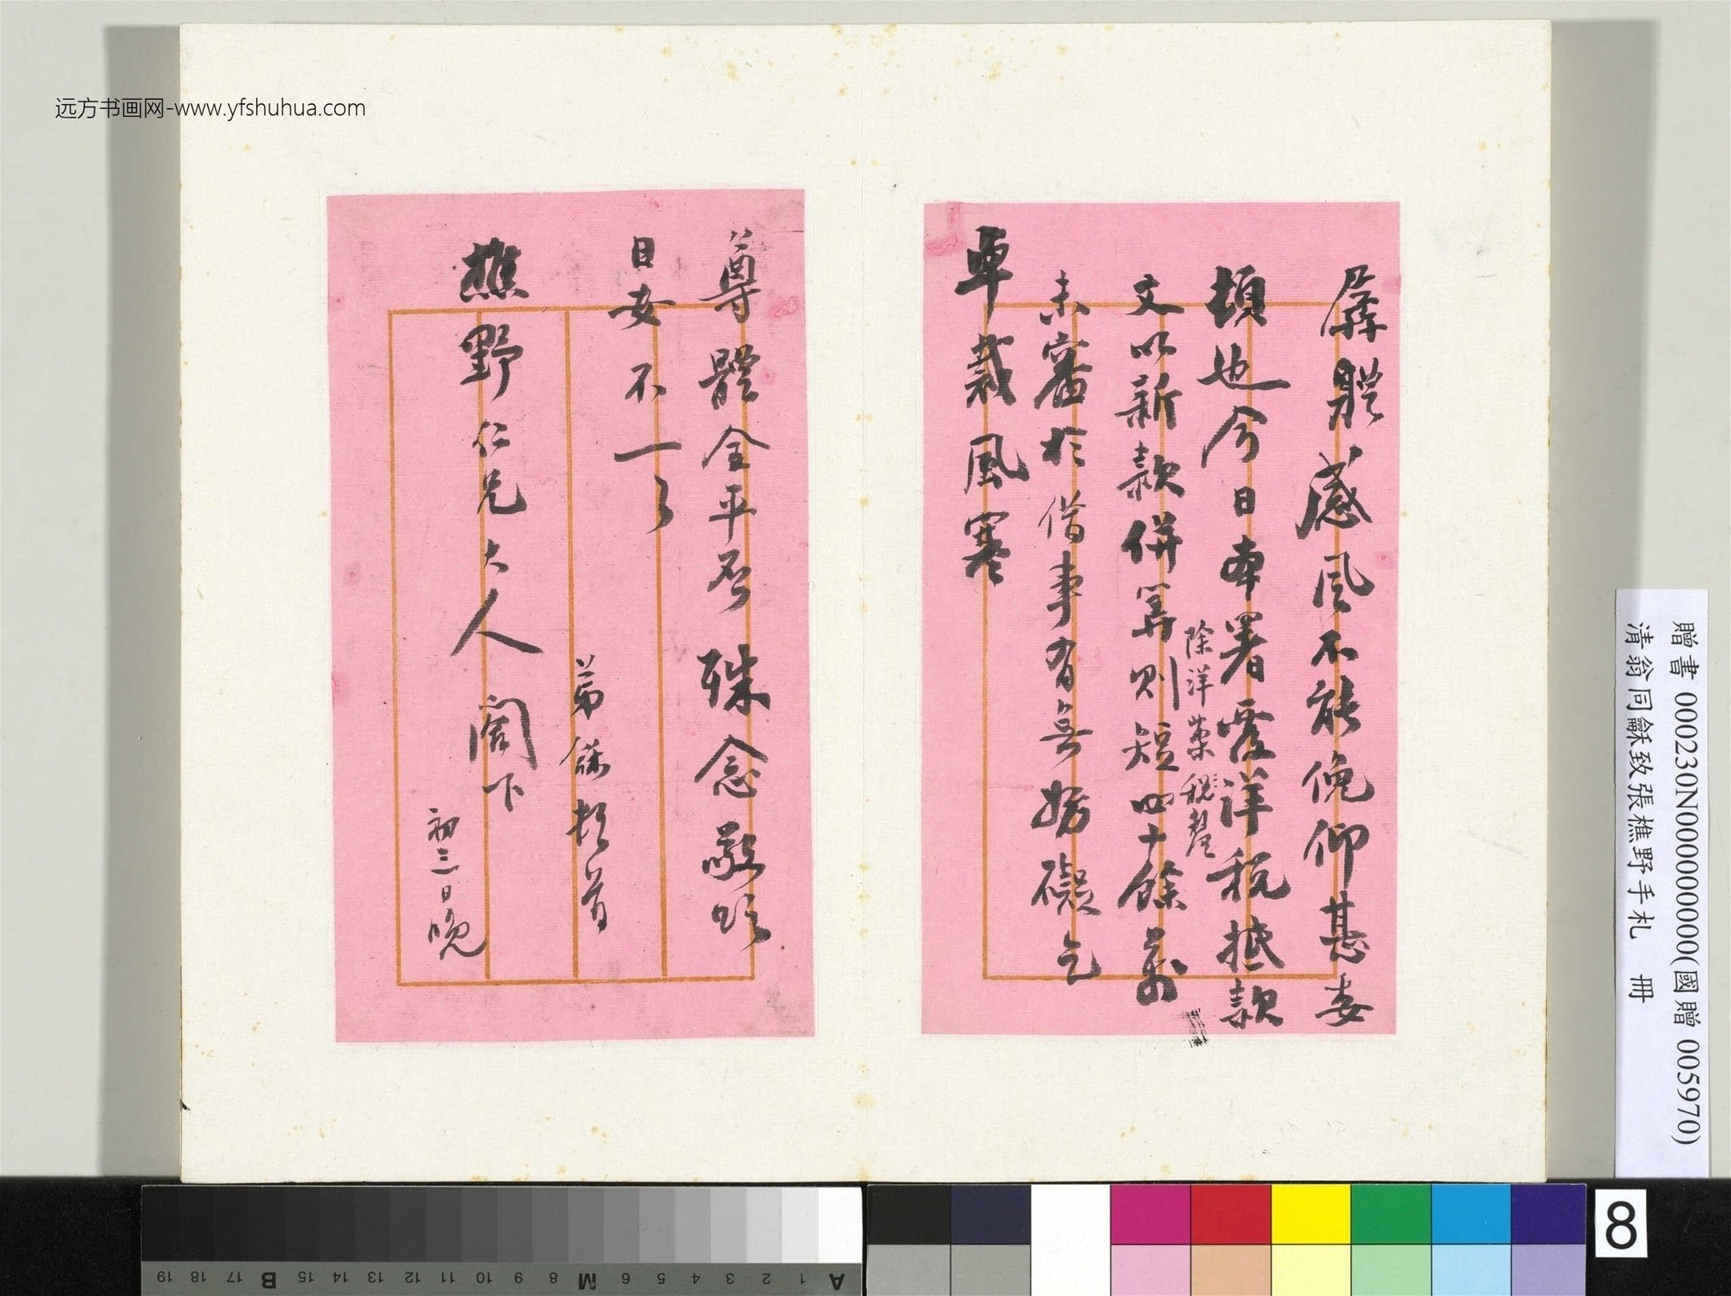 孱體感風不能俛仰甚委
頓也今日本署覆洋稅抵款
除洋藥稅釐
文以新款併算則短四十餘萬
未審於借事有無妨礙乞
卓裁風寒
尊體全平否殊念敬頌
日安不一了
弟龢頓首
樵野仁兄大人閣下
初三日晚
远方书画网-www.yfshuhua.com
贈書 000230N000000000(國贈 005970)
清翁同龢致張樵野手札 冊
8
A 1 2 3 4 5 6 M 8 9 10 11 12 13 14 15 B 17 18 19